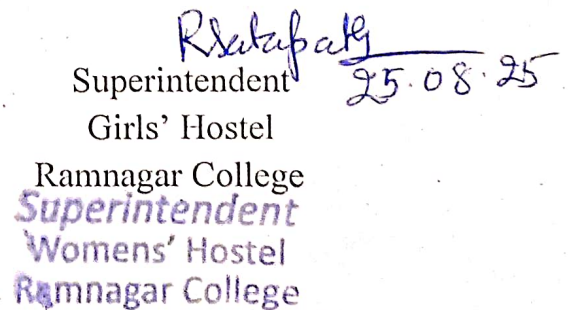 Rsatapathy
25.08.25
Superintendent
Girls' Hostel
Ramnagar College
Superintendent
Womens' Hostel
Ramnagar College